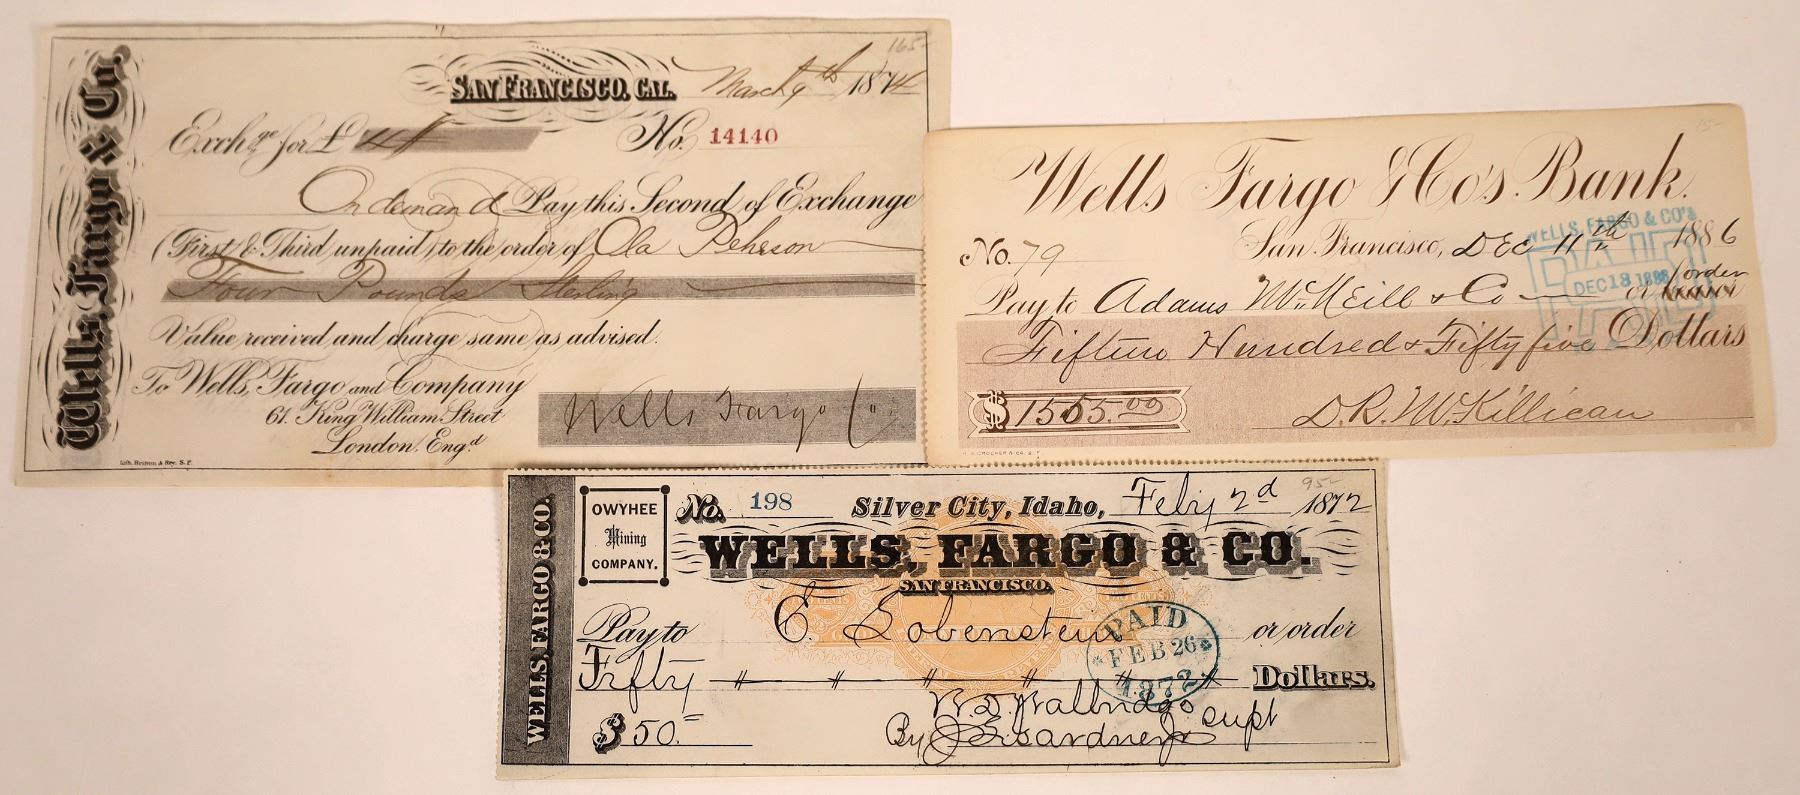 Wells, Fargo & Co.
165-
SAN FRANCISCO, CAL. March 9th 1874
Exchge for £ 4 No. 14140
On demand Pay this Second of Exchange
(First & Third unpaid) to the order of Ola Pehrson
Four Pounds Sterling
Value received and charge same as advised.
To Wells, Fargo and Company
61. King William Street
London, Engd
Wells Fargo Co.
Lith. Britton & Rey. S.F.
15-
Wells Fargo & Co's. Bank.
No. 79 San Francisco, Dec 11th 1886
WELLS, FARGO & CO'S
PAID
DEC 13 1886
Pay to Adams McNeill & Co or order
Fifteen Hundred & Fifty five Dollars
$ 1555.00 D. R. McKillican
H.S. CROCKER & CO. S.F.
WELLS, FARGO & CO.
OWYHEE
Mining
COMPANY.
95-
No. 198 Silver City, Idaho, Feby 2d 1872
WELLS, FARGO & CO.
SAN FRANCISCO.
Pay to E. Lobenstein or order
PAID
FEB 26
1872
Fifty Dollars.
$ 50.= W. D. Walbridge supt
By J. Gardner